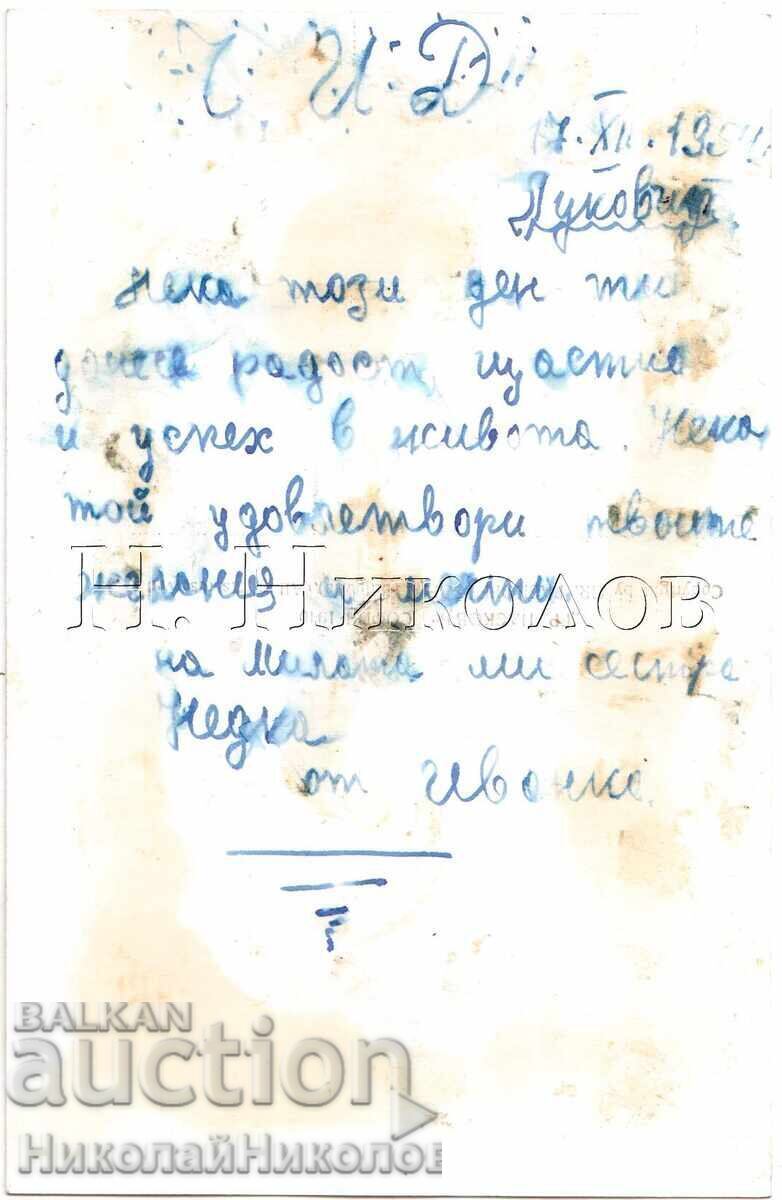 Ч И Д
17. XII. 195
Луковит
Нека този ден ти
донесе радост, щастие
и успех в живота. Нека
той удовлетвори твоите
желания и мечти.
Н. НИКОЛОВ
на милата ми сестра
Недка
от Иванка.
BALKAN
auction
НиколайНиколов